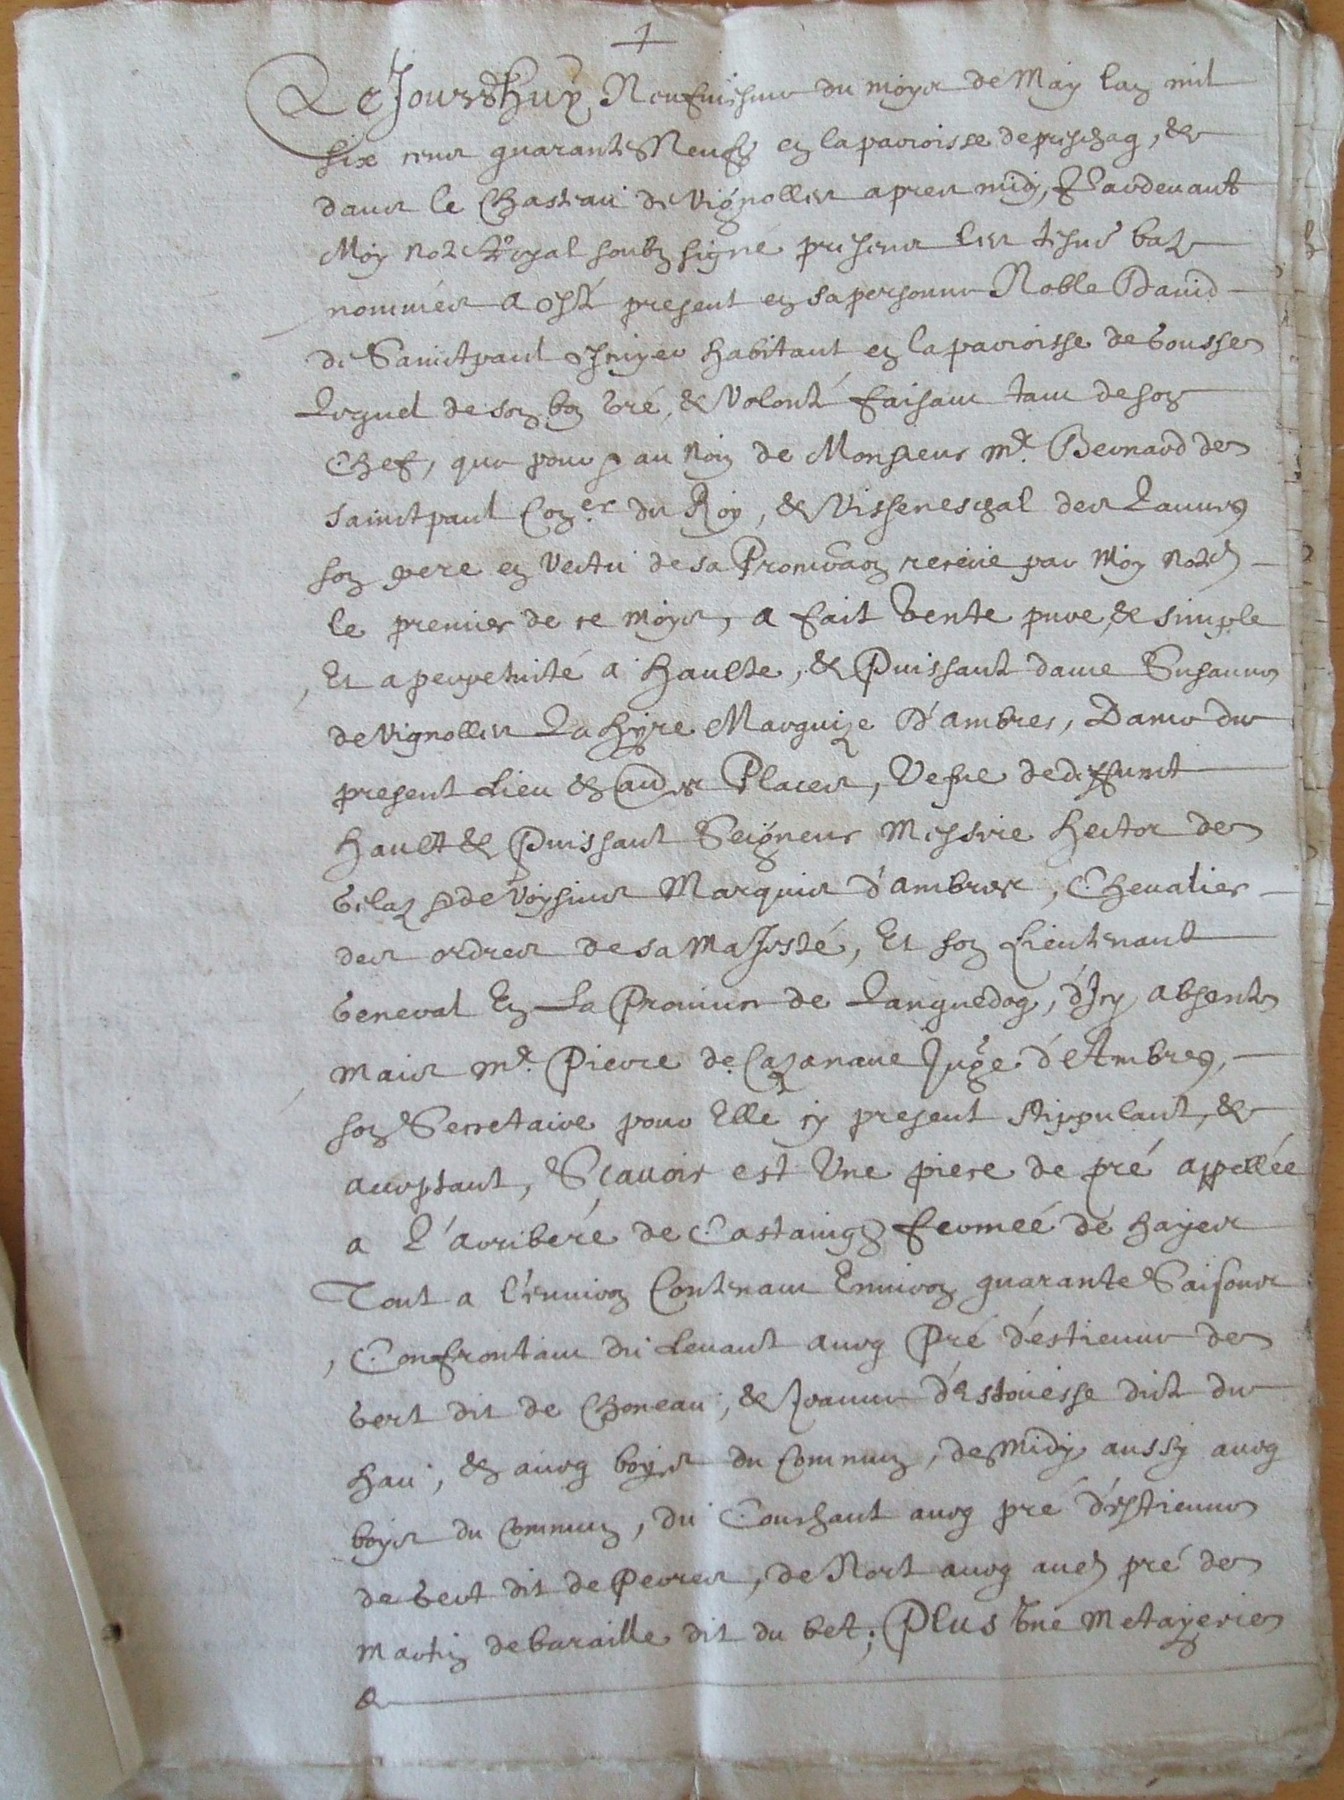 Ce Jourdhuy Neufviesme du moys de May lan mil
six cens quarante Neuf en la parroisse de preschag, &
dans le Chasteau de Vignolles apres midy, Pardevant
Moy Not.re Royal soubz signé presens les tesms bas
nommés a esté present en sa personne Noble David
de Sainctpaul escuyer habitant en la parroisse de Gousse
Lequel de son bon gré, & Volonté faisant tant de son
Chef, que pour & au Nom de Monsieur m.e Bernard de
Sainctpaul Con.er du Roy, & Visseneschal des Lannes
son pere en Vertu de sa Procuraon receue par Moy notre
le premier de ce moys, a fait Vente pure, & simple
Et a perpetuité a Haulte, & Puissant dame Susanne
de Vignolles La hyre Marquize d'ambres, Dame du
present Lieu & au.es Places, Vefve de deffunct
Hault & Puissant Seigneur Messire Hector de
Gelaz & de Voysins Marquis d'ambres, Chevalier
des ordres de sa Majesté, Et son Lieutenant
General En La Province de Languedog, d'Icy absente
mais m.e Pierre de Cazanave Juge d'Ambres,
son Secretaire pour Elle icy present stippulant, &
acceptant, Sçavoir est Une piece de pré appellée
a L'arribére de Castaings fermée de hayes
Tout a l'environ Contenant Environ quarante Saisons
, Confrontant du Levant avec Pré d'estienne de
Vert dit de Choneau, & Jeanne d'Estouesse dicte du
hau, & aveq boys du Commun, de Midy aussy aveq
boys du Commun, du Couchant aveq pré d'estienne
de Vert dit de Perres, de Nort aveq au.e pré de
Martin de baraille dit du bet; Plus Une Metayerie
&